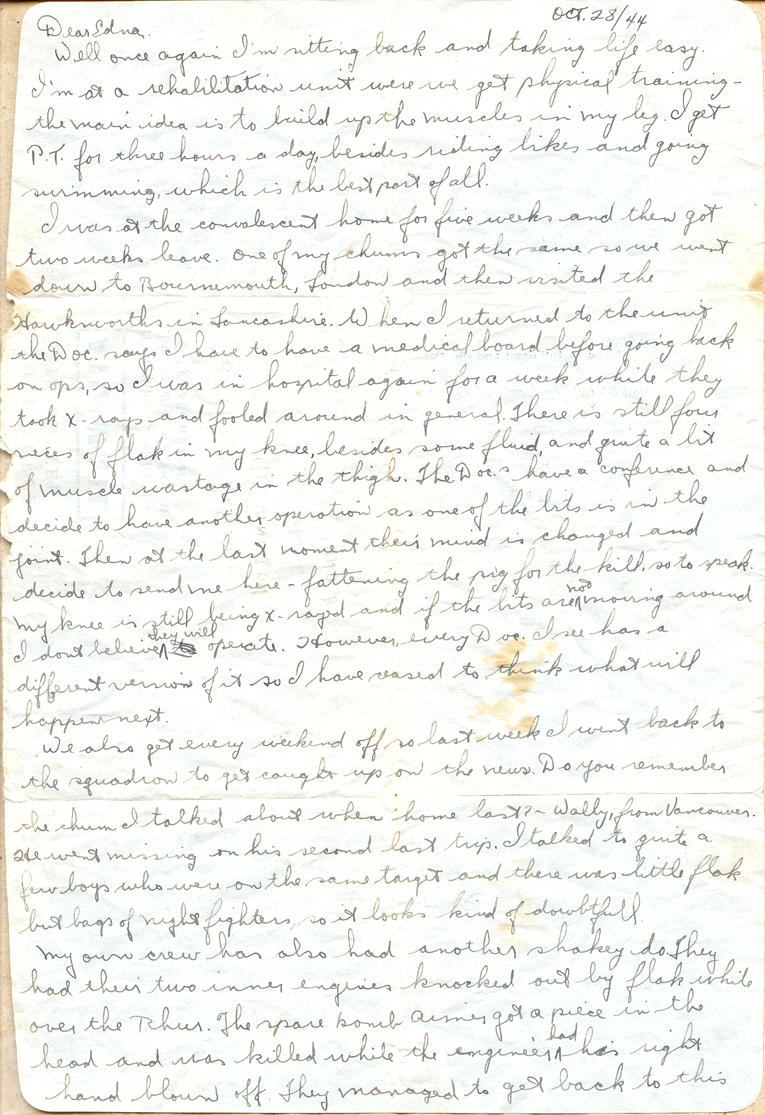 Oct. 28/44
Dear Edna.
Well once again I'm sitting back and taking life easy.
I'm at a rehabilitation unit were we get physical training -
the main idea is to build up the muscles in my leg. I get
P.T. for three hours a day, besides riding bikes and going
swimming, which is the best part of all.
I was at the convalescent home for five weeks and then got
two weeks leave. One of my chums got the same so we went
down to Bournemouth, London and then visited the
Hawksworths in Lancashire. When I returned to the unit
the Doc. says I have to have a medical board before going back
on ops, so I was in hospital again for a week while they
took X-rays and fooled around in general. There is still four
pieces of flak in my knee, besides some fluid, and quite a bit
of muscle wastage in the thigh. The Doc.s have a conference and
decide to have another operation as one of the bits is in the
joint. Then at the last moment their mind is changed and
decide to send me here - fattening the pig for the kill, so to speak.
My knee is still being X-rayed and if the bits are not moving around
I dont believe they will operate. However, every Doc. I see has a
different version of it so I have ceased to think what will
happen next.
We also get every weekend off so last week I went back to
the squadron to get caught up on the news. Do you remember
the chum I talked about when home last? - Wally, from Vancouver.
He went missing on his second last trip. I talked to quite a
few boys who were on the same target and there was little flak
but bags of night fighters, so it looks kind of doubtfull.
My own crew has also had another shakey do. They
had their two inner engines knocked out by flak while
over the Rhur. The spare bomb aimer got a piece in the
head and was killed while the engineer had his right
hand blown off. They managed to get back to this